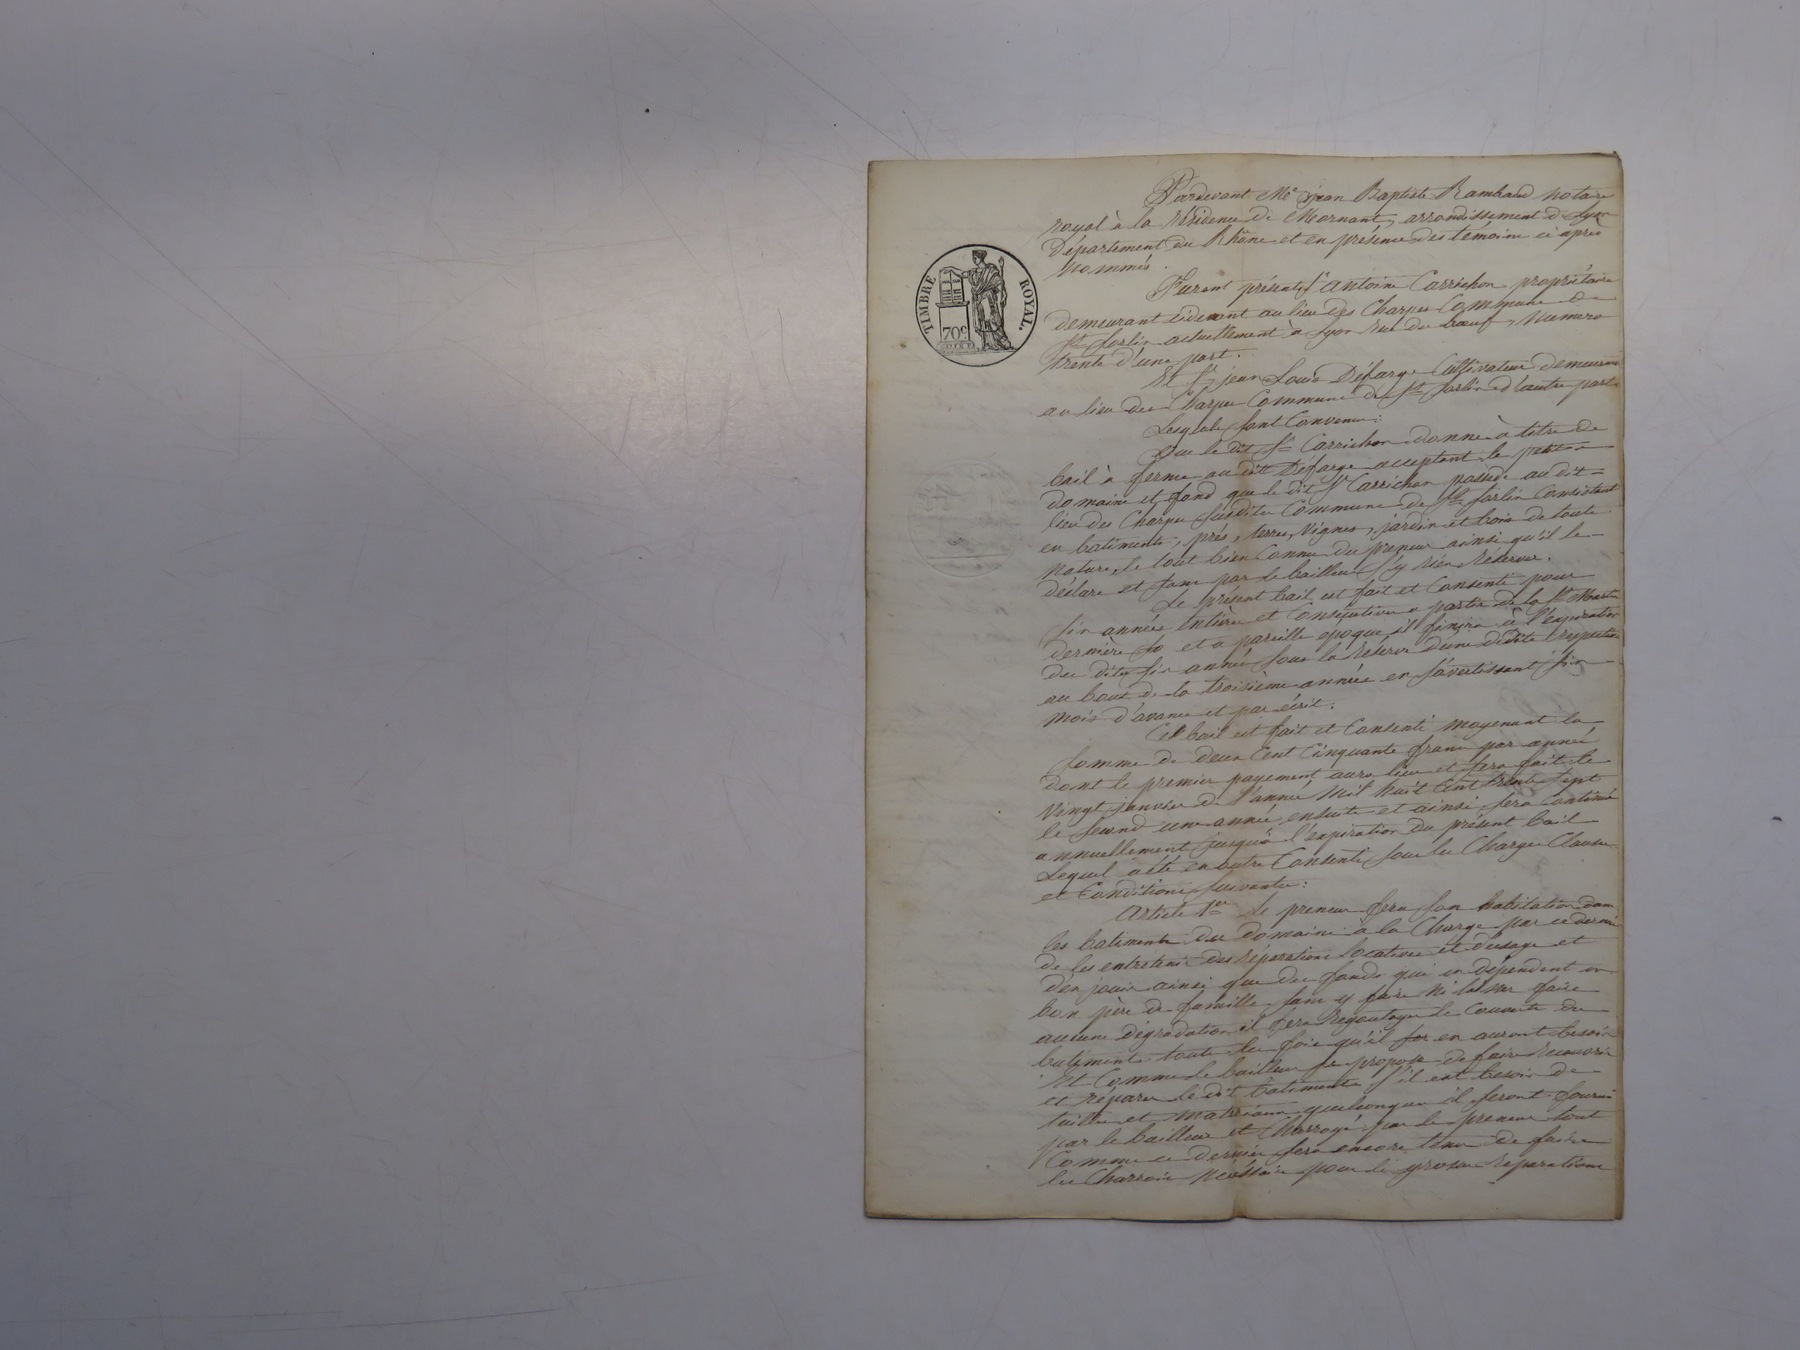 TIMBRE ROYAL.
70c
Pardevant Me jean Baptiste Rambaud notaire
royal à la résidence de Mornant, arrondissement de Lyon
Département du Rhône et en présence des temoins ci après
nommés.
Furent présents Sr antoine Carrichon propriétaire
demeurant cidevant au lieu des Charpes Commune de
St Sorlin actuellement à Lyon rue du bœuf, Numero
trente d'une part.
Et Sr jean Louis Défarge Cultivateur demeurant
au lieu des Charpes Commune de St Sorlin d'autre part
Lesquels sont Convenus:
Que le dit Sr Carrichon donne à titre de
bail à ferme au dit Défarge acceptant le petit
domaine et fond que le dit Sr Carrichon possède au dit=
lieu des Charpes susdite Commune de St Sorlin Consistant
en batiments, prés, terres, Vignes, jardin et bois de toute
nature, le tout bien Connu du preneur ainsi qu'il le
déclare et sans par le bailleur s'y rien réserver.
Le présent bail est fait et Consenti pour
six années entières et Consecutives a partir de la St Martin
dernière et a pareille époque il finira à l'expiration
des dites six années sous la réserve d'une dédite respective
au bout de la troisième année en s'avertissant six
mois d'avance et par écrit.
Ce bail est fait et Consenti moyenant la
somme de deux Cent Cinquante francs par année
dont le premier payement aura lieu et sera fait le
Vingt janvier de l'année mil huit Cent trente sept
le second une année ensuite et ainsi sera Continué
annuellement jusqu'à l'expiration du présent bail
Lequel a été en outre Consenti sous les Charges Clauses
et Conditions suivantes:
Article 1er Le preneur fera son habitation dans
les batiments du domaine à la Charge par ce dernier
de les entretenir des réparations locatives et d'usage et
d'en jouir ainsi que des fonds qui en dépendent en
bon père de famille sans y faire ni laisser faire
aucune dégradation il fera regoutoyer le Couverts des
batiments toutes les fois qu'il en auront besoin
Et Comme le bailleur se propose de faire recouvrir
et réparer le dit batiments s'il est besoin de
tuilles et matériaux quelconques il seront fournis
par le bailleur et Charroyé par le preneur tout
Comme ce dernier sera encore tenu de faire
les Charrois nécéssaire pour les grosses réparations